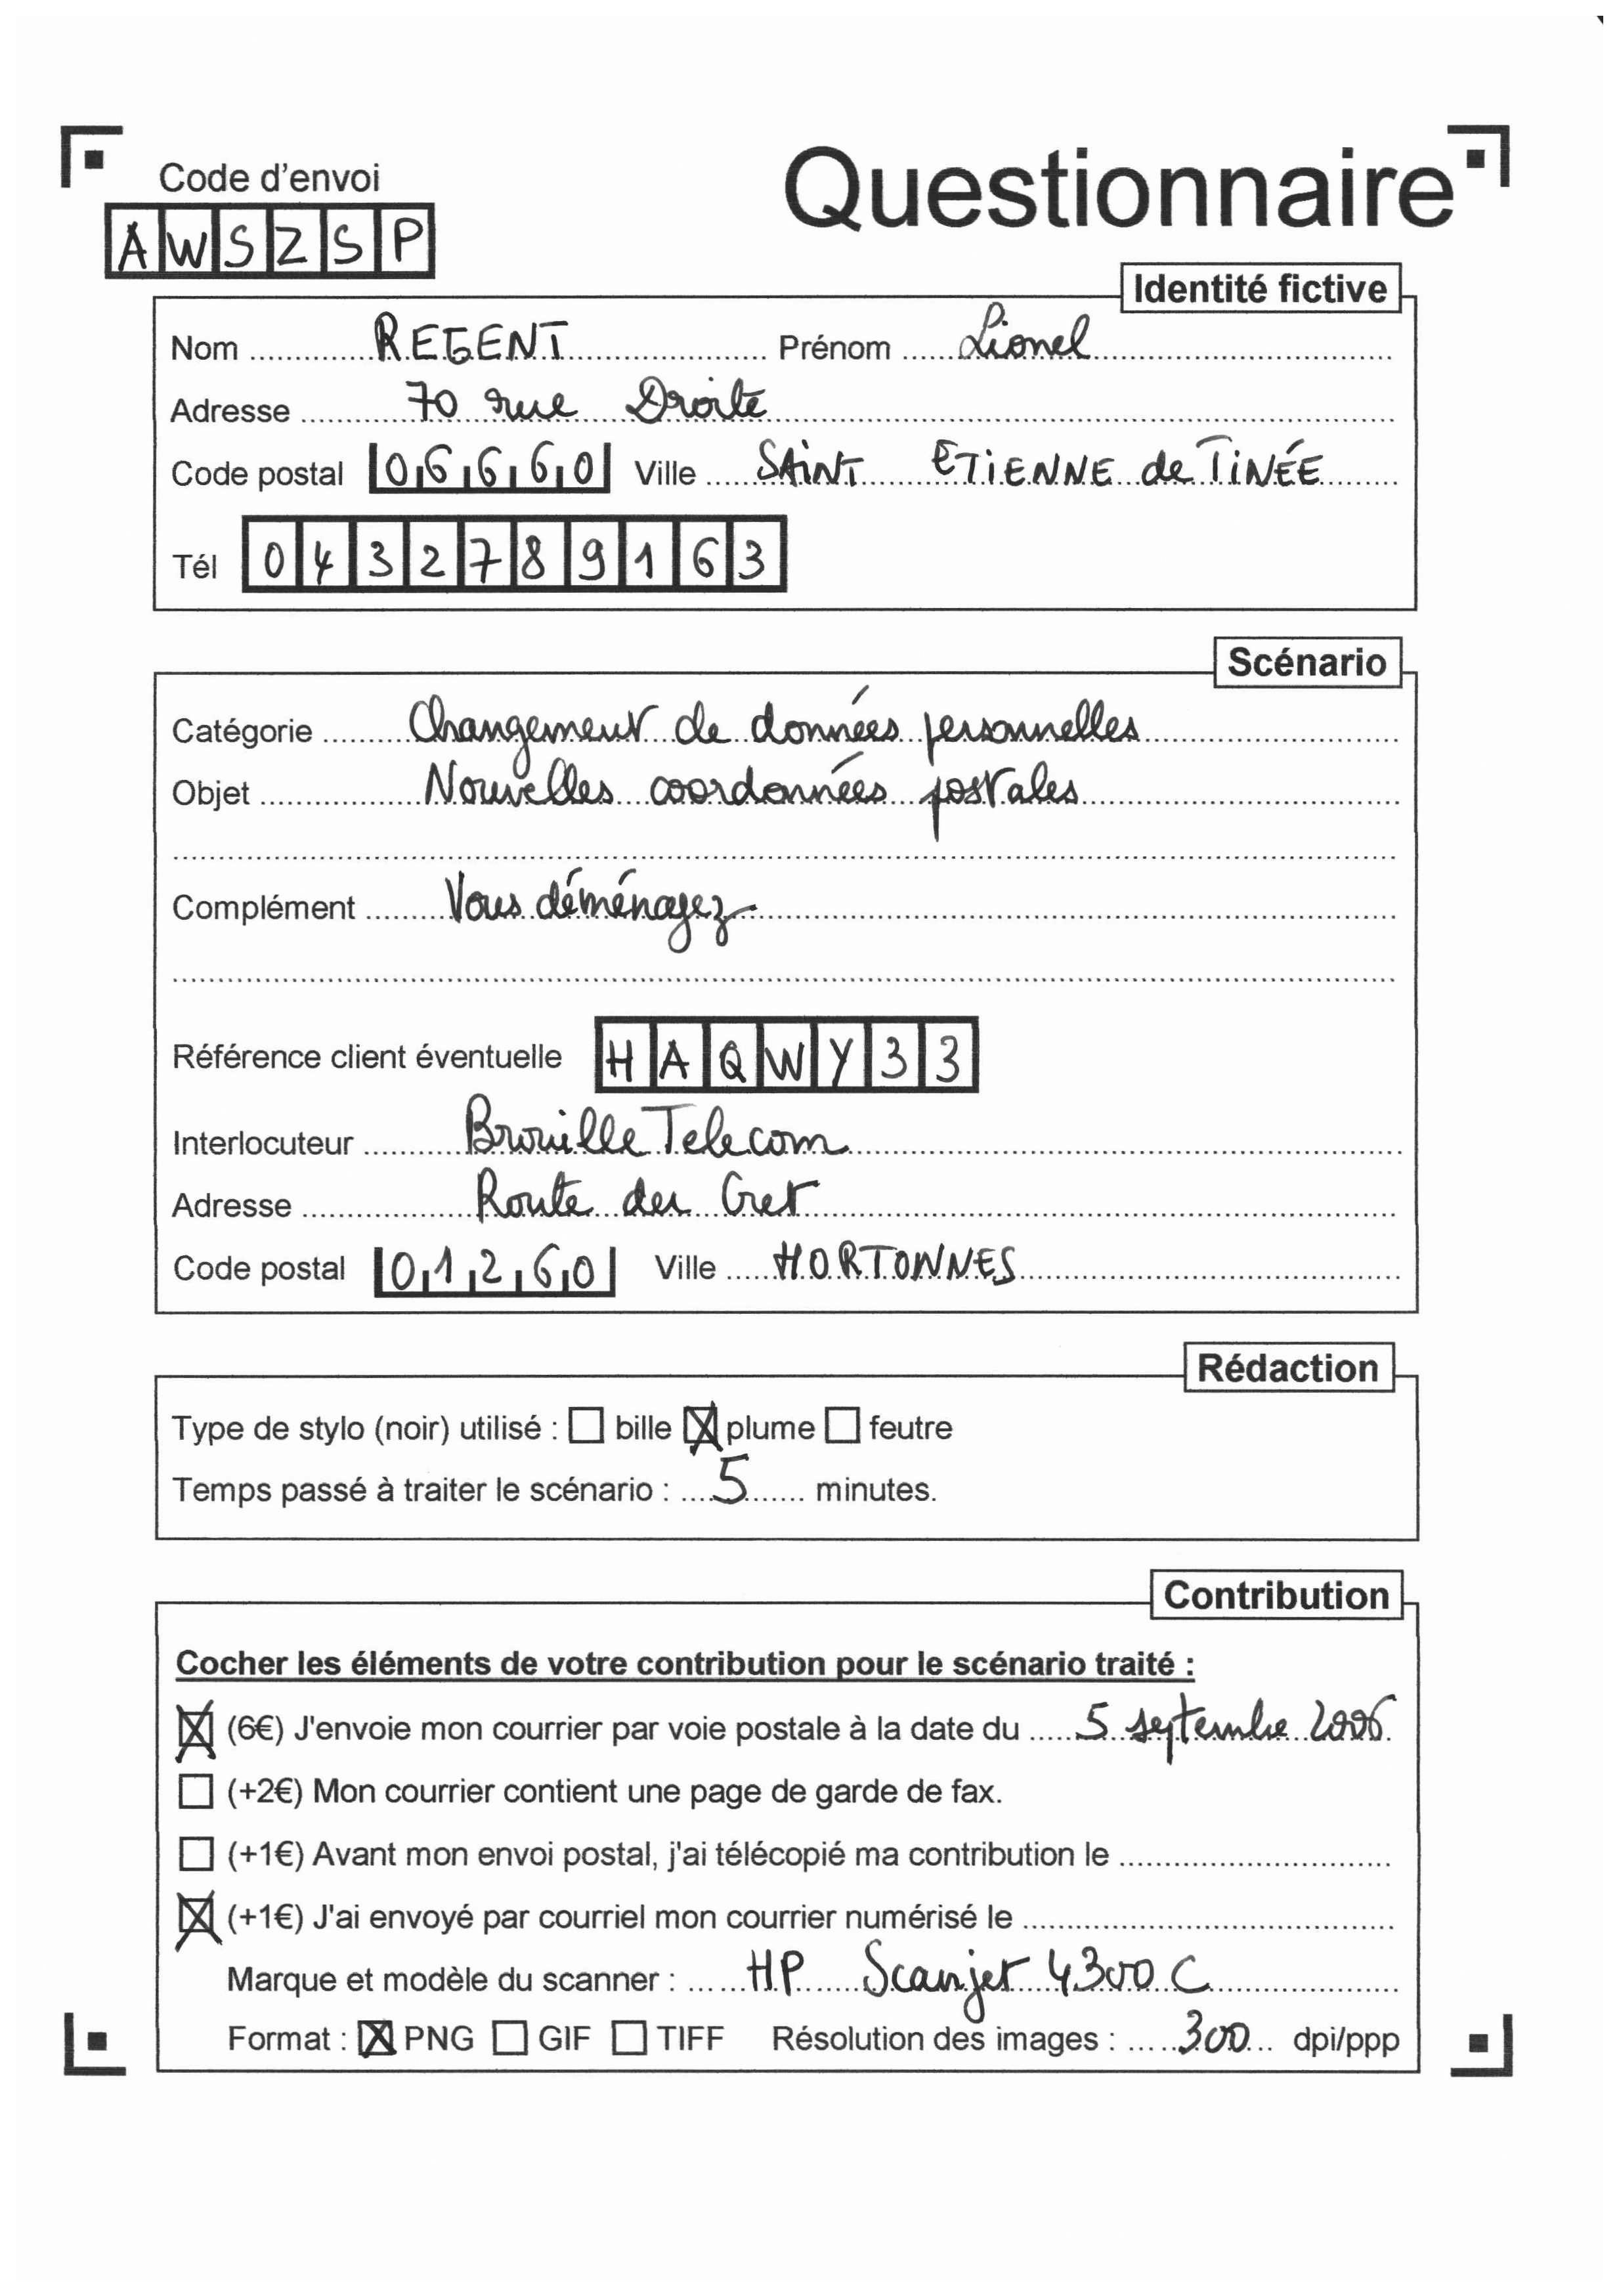 Code d'envoi
Questionnaire
AWSZSP
Identité fictive
Nom REGENT Prénom Lionel
Adresse 70 rue Droite
Code postal 06660 Ville SAINT ETIENNE de TiNÉE
Tél 0432789163
Scénario
Catégorie Changement de données personnelles
Objet Nouvelles coordonnées postales
Complément Vous déménagez
Référence client éventuelle HAQWY33
Interlocuteur Brouille Telecom
Adresse Route du Cret
Code postal 01260 Ville HORTONNES
Rédaction
Type de stylo (noir) utilisé : ☐ bille ☒ plume ☐ feutre
Temps passé à traiter le scénario : 5 minutes.
Contribution
Cocher les éléments de votre contribution pour le scénario traité :
☒ (6€) J'envoie mon courrier par voie postale à la date du 5 septembre 2006
☐ (+2€) Mon courrier contient une page de garde de fax.
☐ (+1€) Avant mon envoi postal, j'ai télécopié ma contribution le
☒ (+1€) J'ai envoyé par courriel mon courrier numérisé le
Marque et modèle du scanner : HP Scanjet 4300 C
Format : ☒ PNG ☐ GIF ☐ TIFF Résolution des images : 300 dpi/ppp